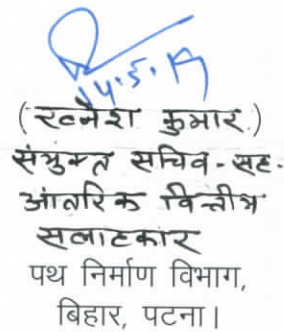 14.5.19
(रत्नेश कुमार)
संयुक्त सचिव-सह-
आंतरिक वित्तीय
सलाहकार
पथ निर्माण विभाग,
बिहार, पटना।